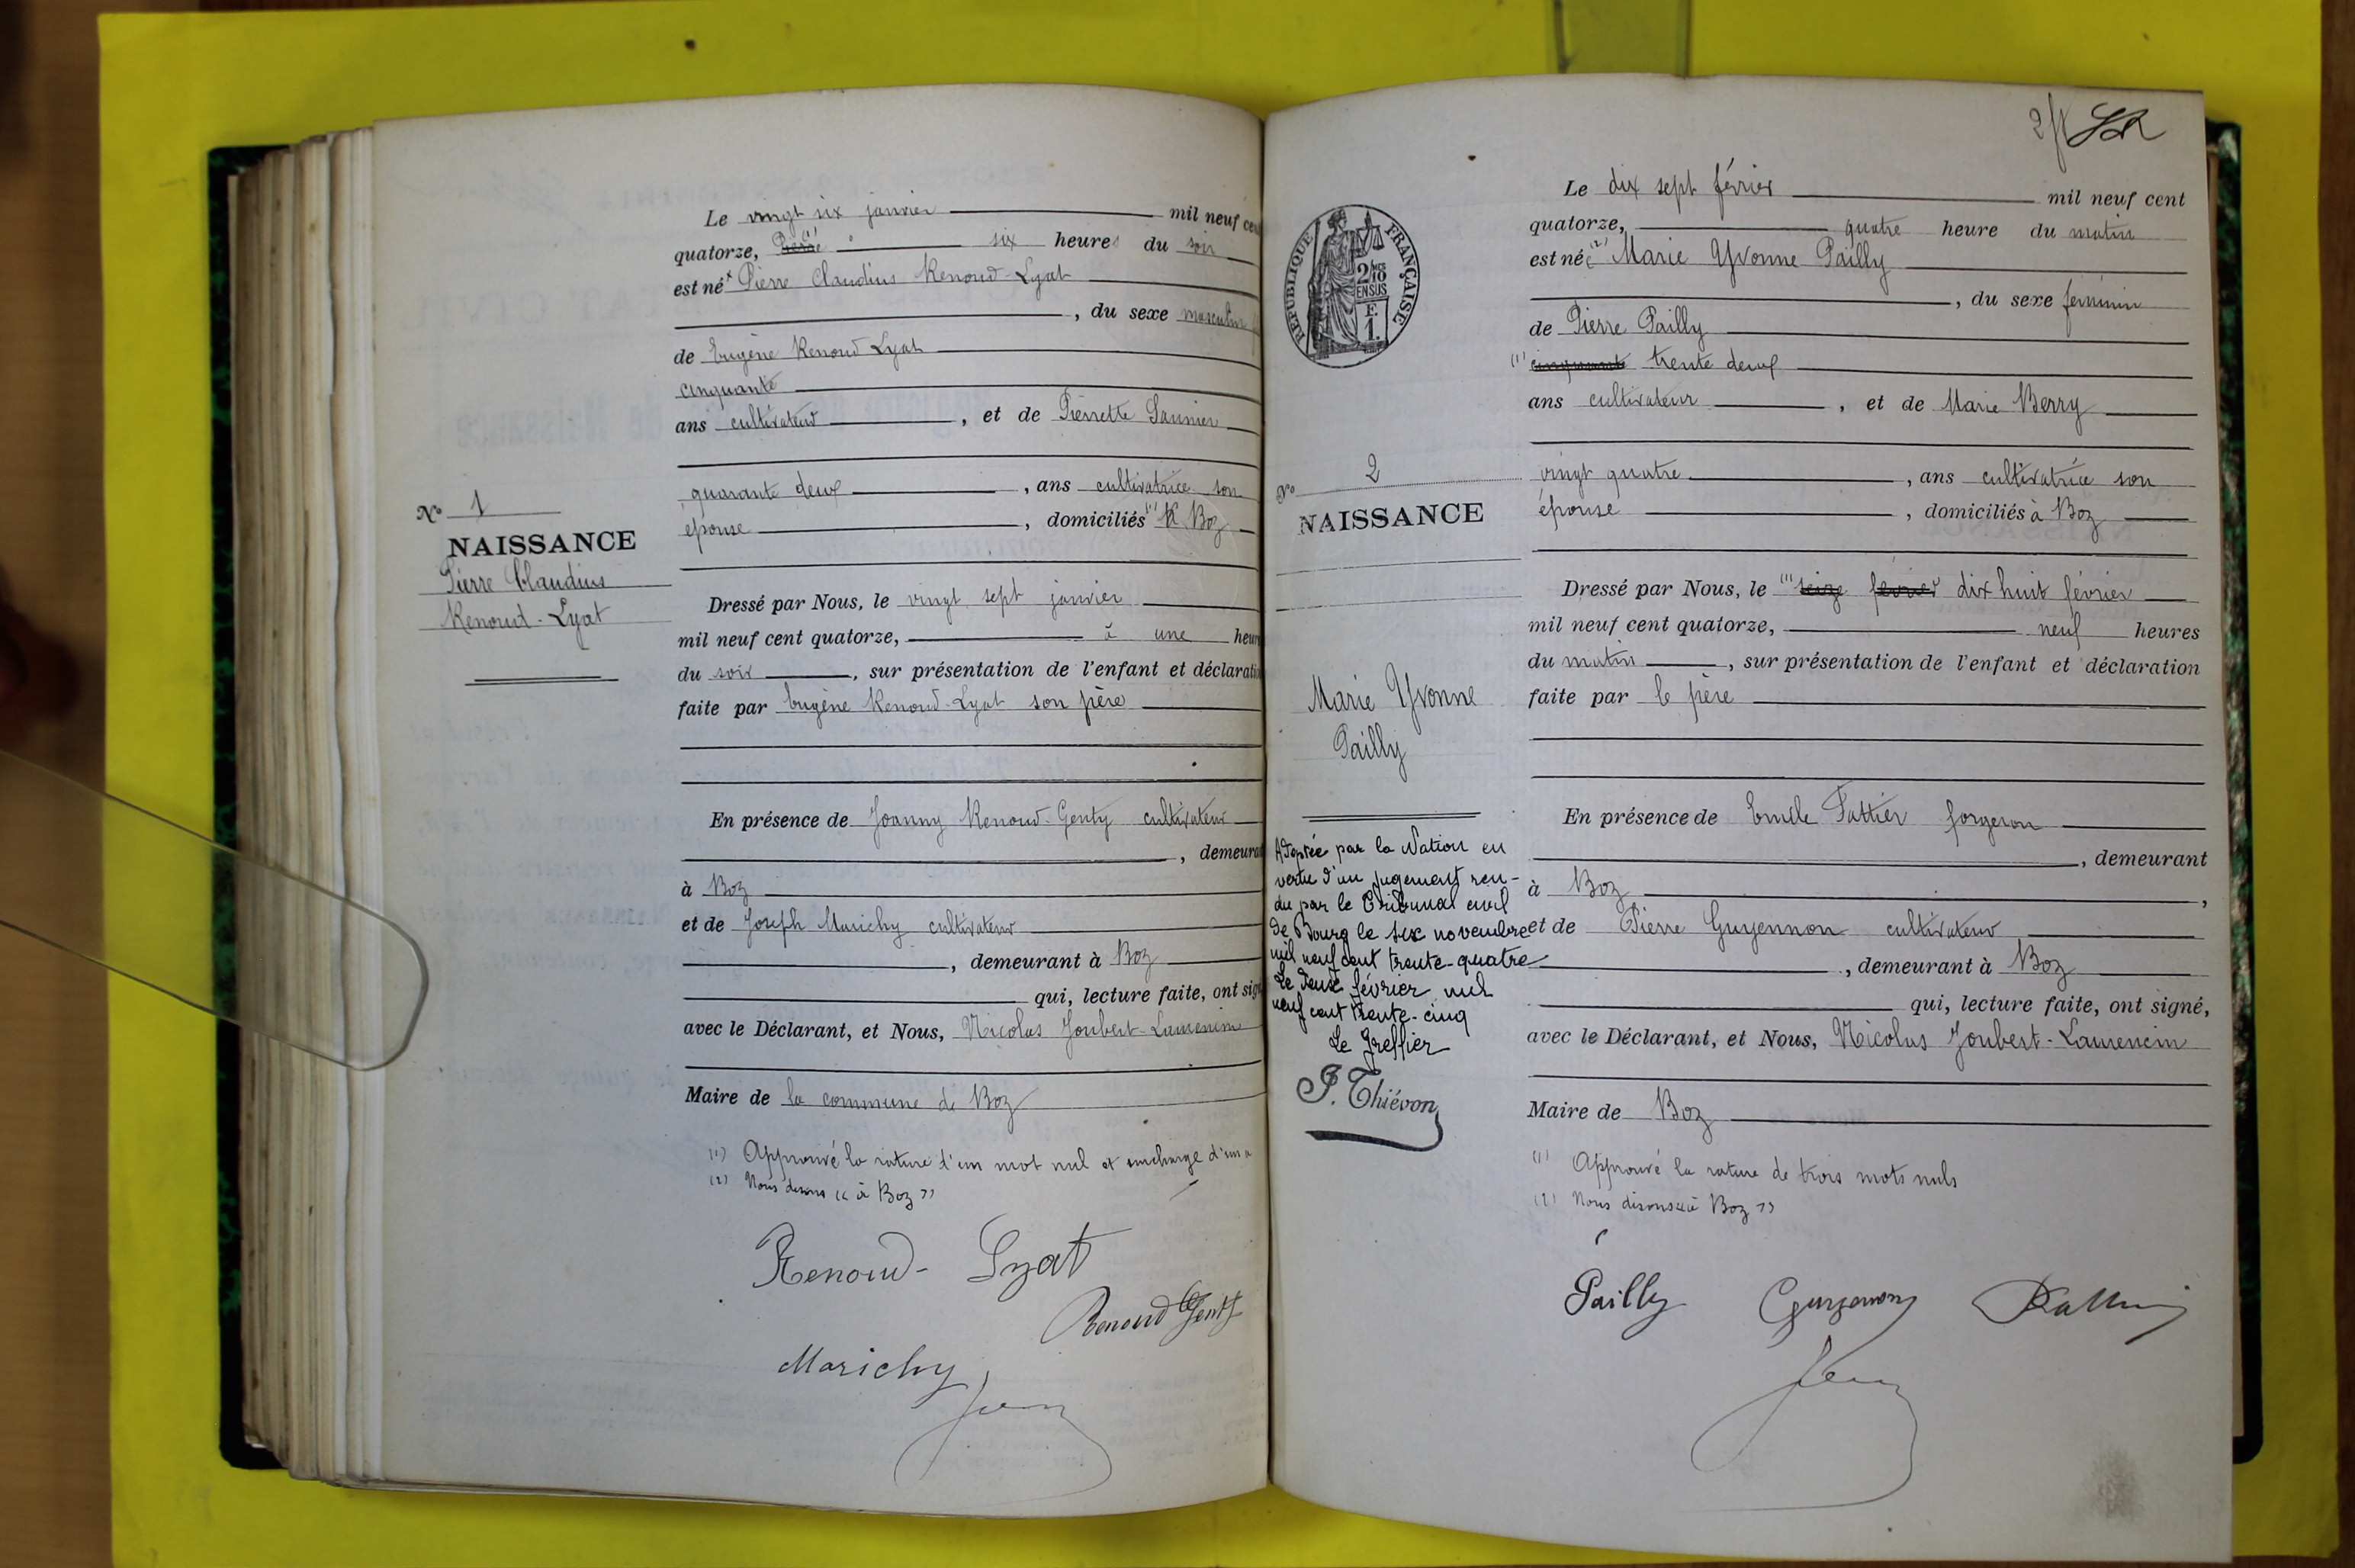 Le vingt six janvier mil neuf cen
quatorze, Pierre (1) six heures du soir
est né Pierre Claudius Renoud-Lyat
, du sexe masculin
de Eugène Renoud Lyat
cinquante
ans cultivateur, et de Pierrette Saunier
quarante deux, ans cultivatrice son
épouse, domiciliés à Boz
N° 1
NAISSANCE
Pierre Claudius
Renoud-Lyat
Dressé par Nous, le vingt sept janvier
mil neuf cent quatorze, à une heure
du soir, sur présentation de l'enfant et déclaration
faite par Eugène Renoud-Lyat son père
En présence de Joanny Renoud-Genty cultivateur
, demeurant
à Boz
et de Joseph Marichy cultivateur
, demeurant à Boz
qui, lecture faite, ont signé
avec le Déclarant, et Nous, Nicolas Joubert-Laurencin
Maire de la commune de Boz
(1) Approuvé la rature d'un mot nul et surcharge d'un
(2) Nous disons « à Boz »
Renoud-Lyat
Renoud Genty
Marichy
2
RÉPUBLIQUE FRANÇAISE
2/10 EN SUS
E.
1.
Le dix sept février mil neuf cent
quatorze, quatre heure du matin
est née (2) Marie Yvonne Pailly
, du sexe féminin
de Pierre Pailly
(1) cinquante trente deux
ans cultivateur, et de Marie Berry
vingt quatre, ans cultivatrice son
épouse, domiciliés à Boz
N° 2
NAISSANCE
Marie Yvonne
Pailly
Dressé par Nous, le (1) seize février dix huit février
mil neuf cent quatorze, neuf heures
du matin, sur présentation de l'enfant et déclaration
faite par le père
En présence de Emile Fattier forgeron
, demeurant
à Boz,
et de Pierre Guyennon cultivateur
, demeurant à Boz
qui, lecture faite, ont signé,
avec le Déclarant, et Nous, Nicolas Joubert-Laurencin
Maire de Boz
Adoptée par la Nation en
vertu d'un jugement ren-
du par le Tribunal civil
de Bourg le six novembre
mil neuf cent trente-quatre
Le deux février mil
neuf cent trente-cinq
Le Greffier
P. Thiévon
(1) Approuvé la rature de trois mots nuls
(2) Nous disons « à Boz »
Pailly Guyennon